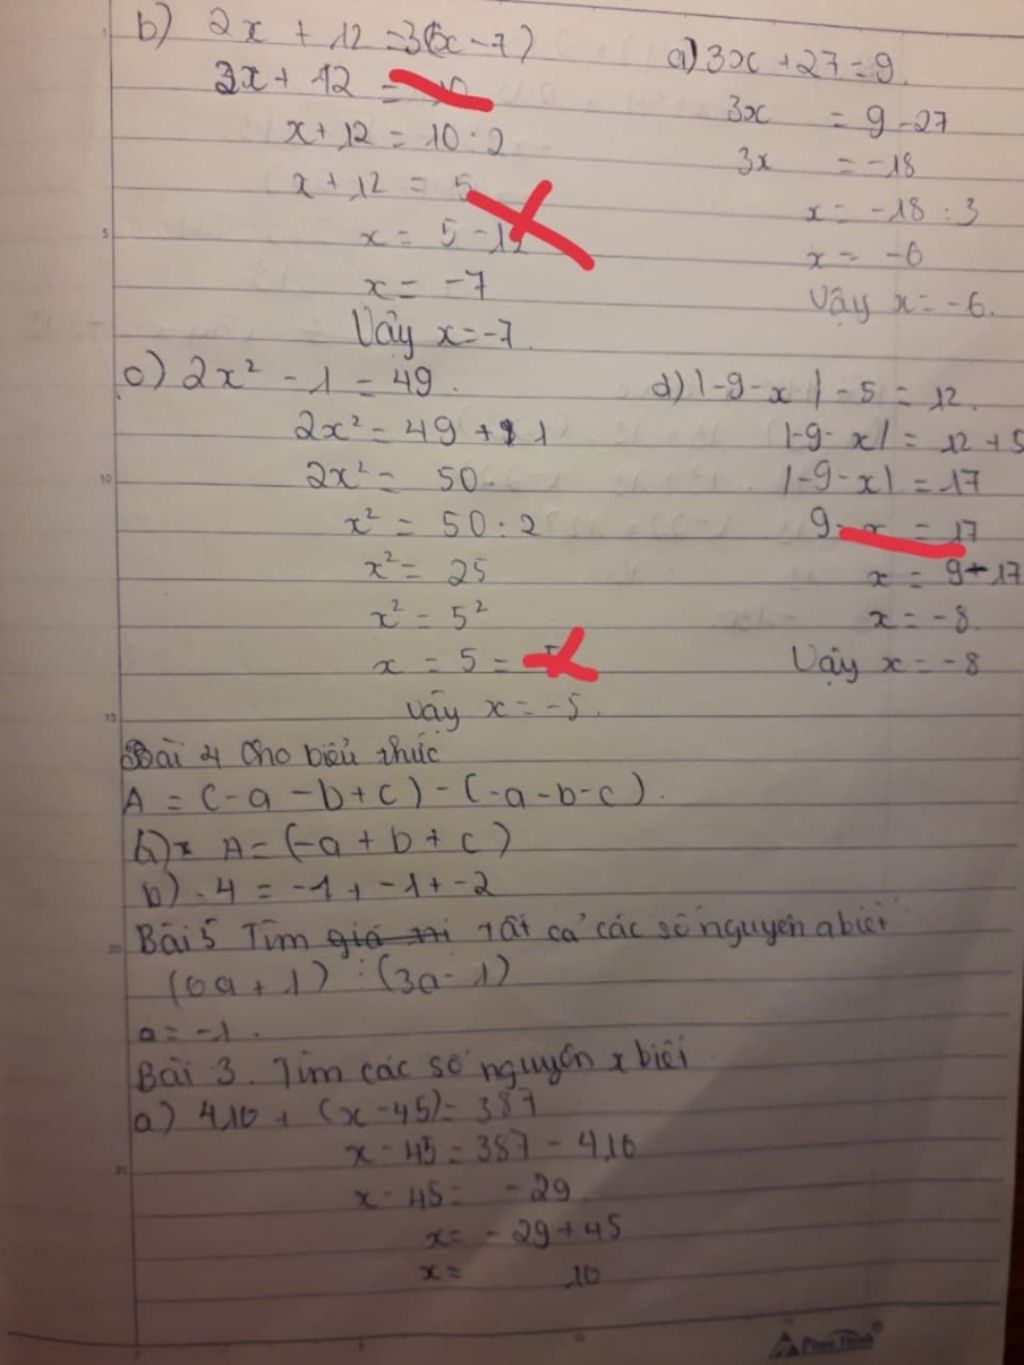 b) 2x + 12 = 3(x - 7)
2x + 12 =
x + 12 = 10 : 2
x + 12 = 5
x = 5 - 12
x = -7
Vậy x = -7.
a) 3x + 27 = 9.
3x = 9 - 27
3x = -18
x = -18 : 3
x = -6
Vậy x = -6.
c) 2x² - 1 = 49.
2x² = 49 + 1
2x² = 50.
x² = 50 : 2
x² = 25
x² = 5²
x = 5 =
vậy x = -5.
d) |-9 - x| - 5 = 12.
|-9 - x| = 12 + 5
|-9 - x| = 17
9 - x = 17
x = 9 - 17
x = -8.
Vậy x = -8
Bài 4 Cho biểu thức
A = (-a - b + c) - (-a - b - c).
A = (-a + b + c)
b) . 4 = -1 + -1 + -2
Bài 5 Tìm giá trị tất cả các số nguyên a biết
(6a + 1) ⋮ (3a - 1)
a = -1.
Bài 3. Tìm các số nguyên x biết
a) 416 + (x - 45) = 387
x - 45 = 387 - 416
x - 45 = -29
x = -29 + 45
x = 16